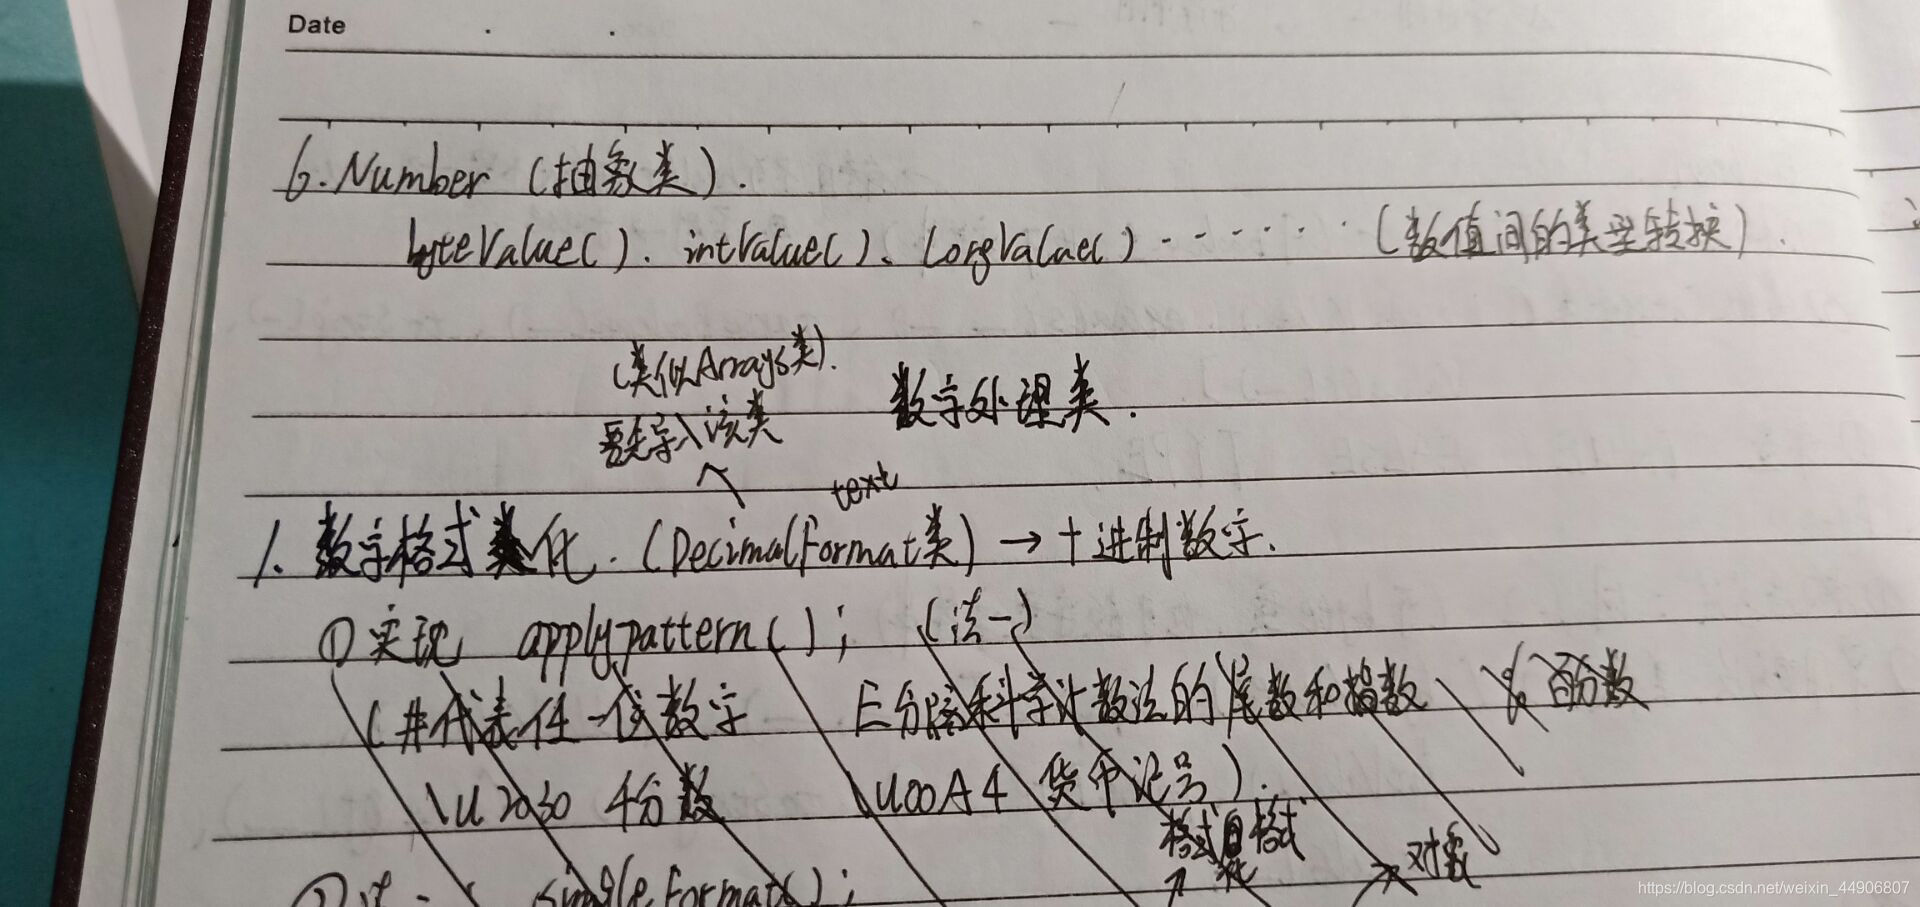 Date
6. Number (抽象类).
byteValue()、intValue()、longValue() ······ (数值间的类型转换).
(类似Arrays类).
要先导入该类
数字处理类.
text
1. 数字格式化. (DecimalFormat类) → 十进制数字.
①实现 applypattern(); (法一)
(#代表任一位数字 E分隔科学计数法的尾数和指数 % 百分数
\u2030 千分数 \u00A4 货币记号).
格式
对象
②法二 singleFormat();
https://blog.csdn.net/weixin_44906807